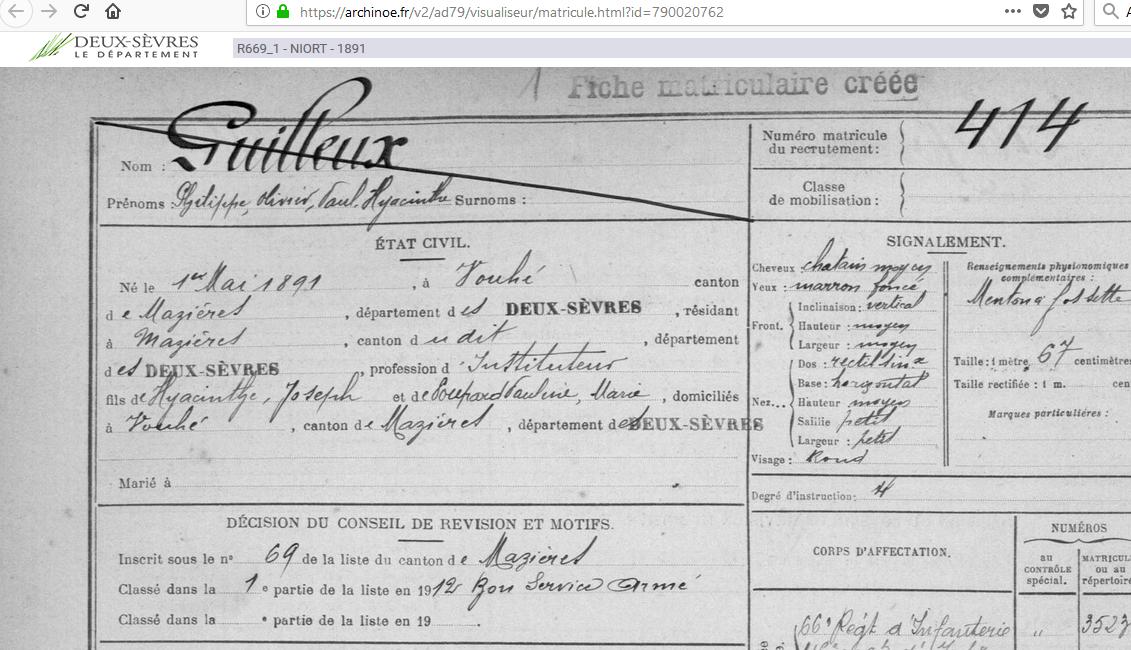 https://archinoe.fr/v2/ad79/visualiseur/matricule.html?id=790020762
DEUX-SÈVRES
LE DÉPARTEMENT
R669_1 - NIORT - 1891
1 Fiche matriculaire créée
Nom : Guilleux
Prénoms : Philippe, Olivier, Paul, Hyacinthe Surnoms :
Numéro matricule
du recrutement : 414
Classe
de mobilisation :
ÉTAT CIVIL.
Né le 1er Mai 1891, à Vouhé canton
de Mazières, département des DEUX-SÈVRES, résidant
à Mazières, canton dudit, département
des DEUX-SÈVRES, profession d'Instituteur
fils de Hyacinthe, Joseph et de Poupard Pauline, Marie, domiciliés
à Vouhé, canton de Mazières, département des DEUX-SÈVRES
Marié à
SIGNALEMENT.
Cheveux : chatain moyen
Yeux : marron foncé
Front. Inclinaison : vertical
Hauteur : moyen
Largeur : moyen
Nez... Dos : rectil sinx
Base : horizontal
Hauteur moyen
Saillie petit
Largeur : petit
Visage : Rond
Renseignements physionomiques
complémentaires :
Menton à fossette
Taille : 1 mètre 67 centimètres
Taille rectifiée : 1 m. cen
Marques particulières :
Degré d'instruction : 4
DÉCISION DU CONSEIL DE REVISION ET MOTIFS.
Inscrit sous le n° 69 de la liste du canton de Mazières
Classé dans la 1e partie de la liste en 1912 Bon Service Armé
Classé dans la e partie de la liste en 19 .
CORPS D'AFFECTATION.
NUMÉROS
au
CONTRÔLE
spécial.
MATRICUL
ou au
répertoire
66e Régt d'Infanterie " 3523